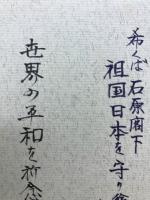 希くば石原閣下
祖国日本を守り
世界の平和を祈念